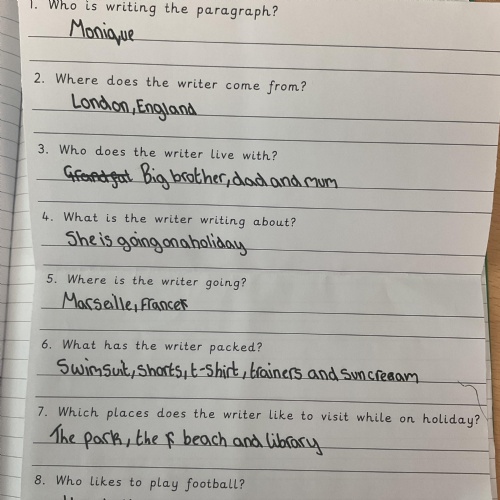 1. Who is writing the paragraph?
Monique
2. Where does the writer come from?
London, England
3. Who does the writer live with?
Big brother, dad and mum
4. What is the writer writing about?
She is going on a holiday
5. Where is the writer going?
Marseille, France
6. What has the writer packed?
Swimsuit, shorts, t-shirt, trainers and suncream
7. Which places does the writer like to visit while on holiday?
The park, the beach and library
8. Who likes to play football?